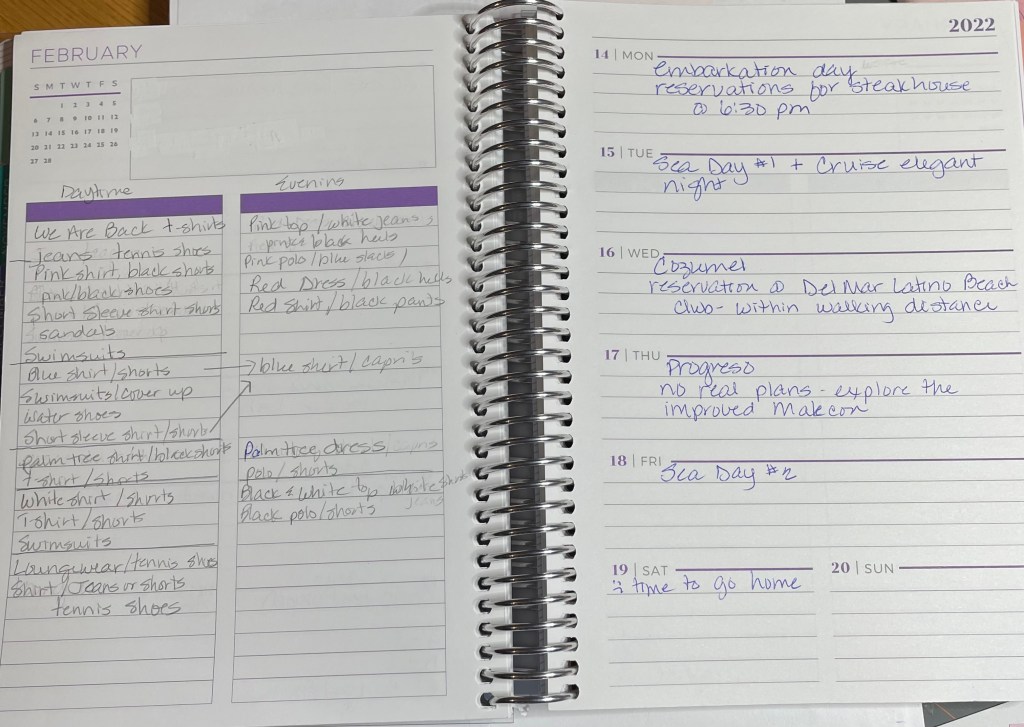 FEBRUARY
S M T W T F S
1 2 3 4 5
6 7 8 9 10 11 12
13 14 15 16 17 18 19
20 21 22 23 24 25 26
27 28
Daytime
We Are Back t-shirts
jeans tennis shoes
Pink shirt, black shorts
pink/black shoes
Short sleeve shirt shorts
sandals
Swimsuits
Blue shirt/shorts
Swimsuits/cover up
Water shoes
Short sleeve shirt/shorts
palm tree shirt/black shorts
t-shirt/shorts
White shirt/shorts
T-shirt/shorts
Swimsuits
Loungewear/tennis shoes
Shirt/Jeans or shorts
tennis shoes
Evening
Pink top/white jeans,
pink & black heels
Pink polo/blue slacks/
Red Dress/black heels
Red Shirt/black pants
→ blue shirt/capris
Palm tree dress
polo/shorts
Black & white top
Black polo/shorts
2022
14 | MON
embarkation day
reservations for steakhouse
@ 6:30 pm
15 | TUE
Sea Day #1 + Cruise elegant
night
16 | WED
Cozumel
reservation @ Del Mar Latino Beach
Club - within walking distance
17 | THU
Progreso
no real plans - explore the
improved Malecon
18 | FRI
Sea Day #2
19 | SAT
:( time to go home
20 | SUN